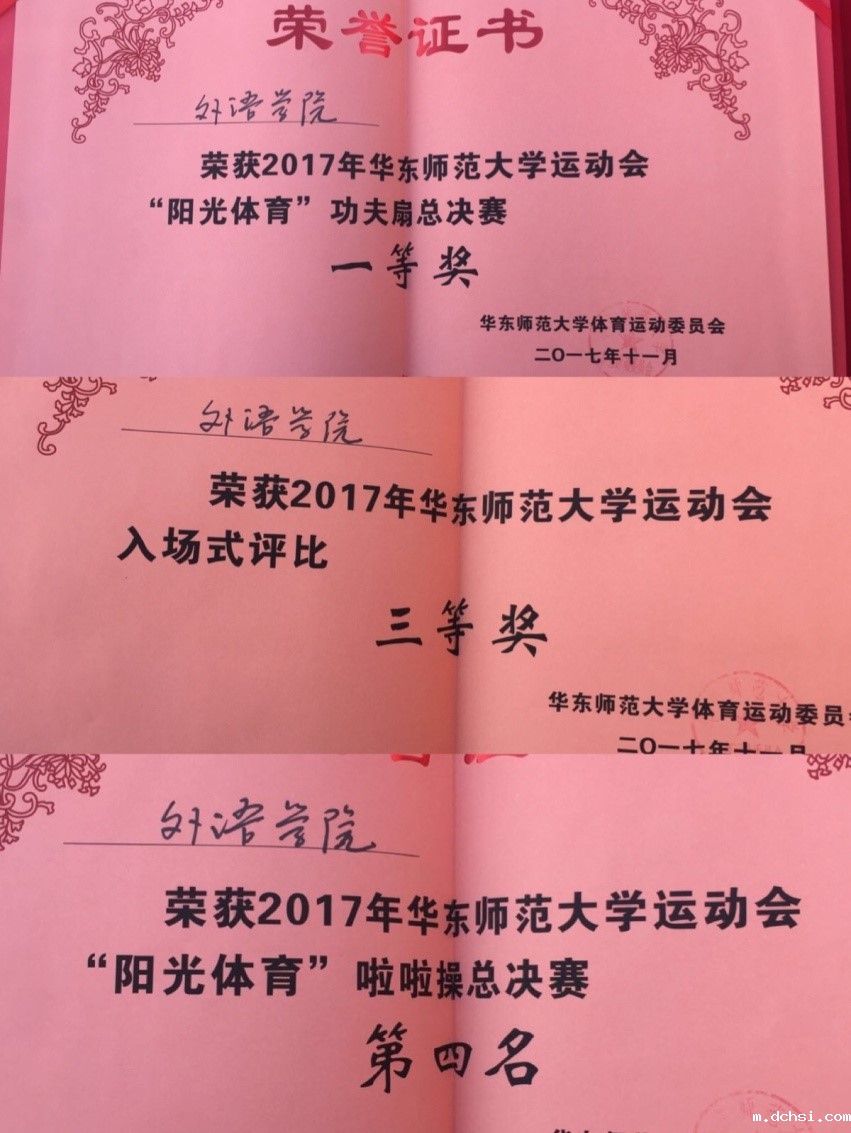 荣誉证书
外语学院
荣获2017年华东师范大学运动会
“阳光体育”功夫扇总决赛
一等奖
华东师范大学体育运动委员会
二〇一七年十一月
外语学院
荣获2017年华东师范大学运动会
入场式评比
三等奖
华东师范大学体育运动委员
二〇一七年十一月
外语学院
荣获2017年华东师范大学运动会
“阳光体育”啦啦操总决赛
第四名
m.dchsi.com